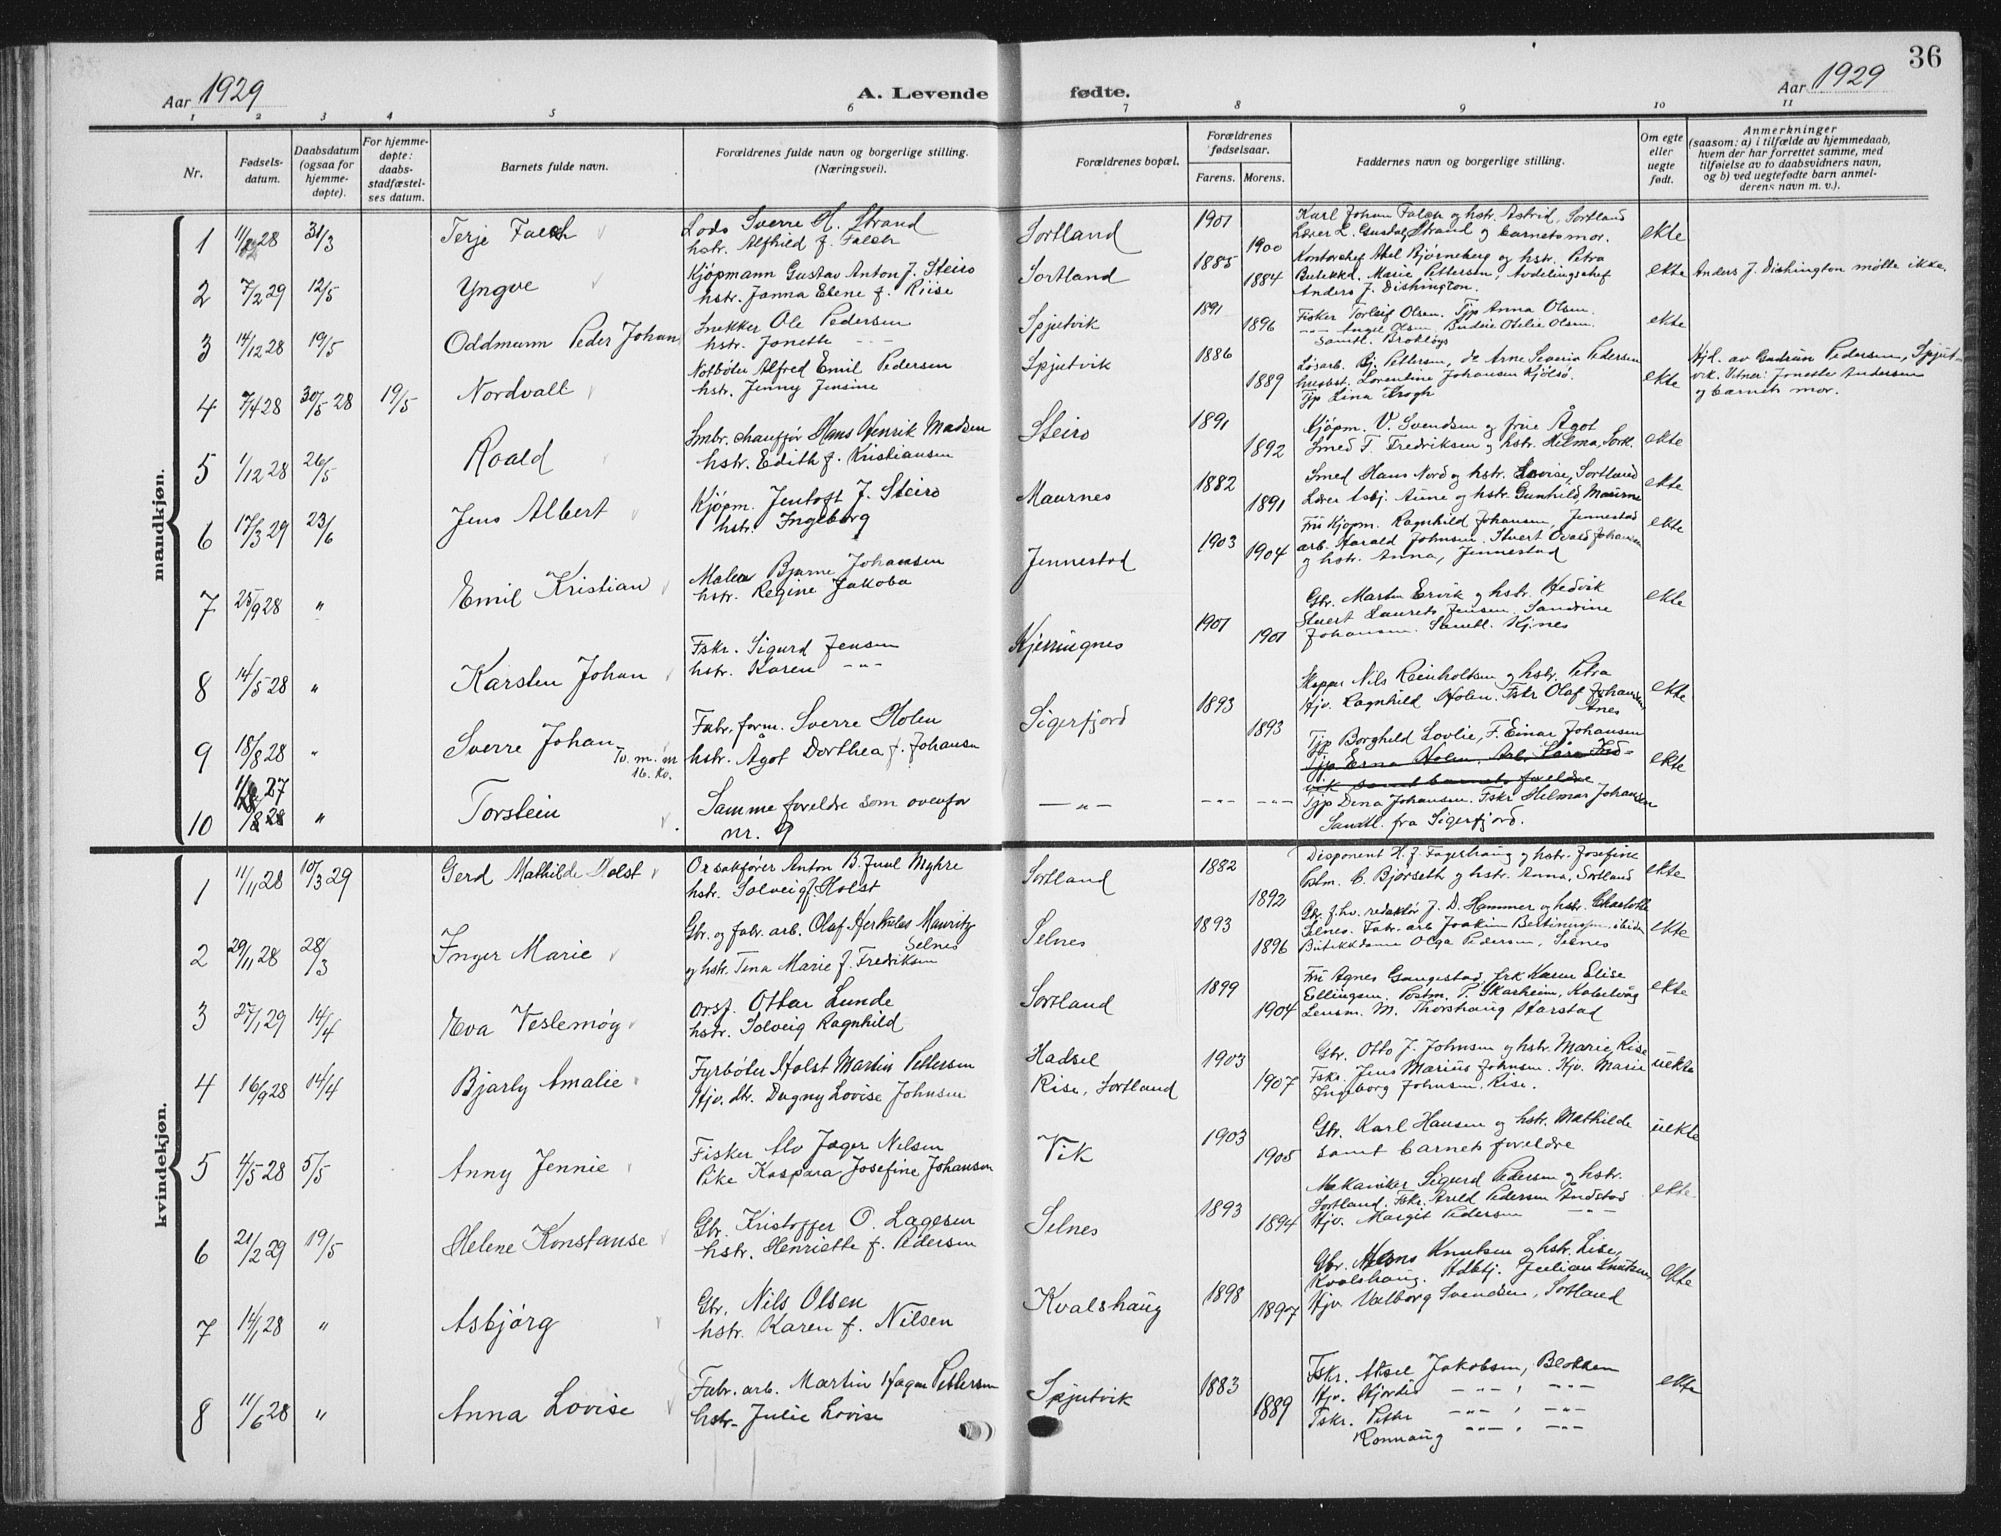 36
Aar 1929
A. Levende fødte.
Aar 1929
1 2 3 4 5 6 7 8 9 10 11
Nr.
Fødsels-
datum.
Daabsdatum
(ogsaa for
hjemme-
døpte).
For hjemme-
døpte:
daabs-
stadfæstel-
ses datum.
Barnets fulde navn.
Forældrenes fulde navn og borgerlige stilling.
(Næringsvei).
Forældrenes bopæl.
Forældrenes
fødselsaar.
Farens. Morens.
Faddernes navn og borgerlige stilling.
Om egte
eller
uegte
født.
Anmerkninger
(saasom: a) i tilfælde av hjemmedaab,
hvem der har forrettet samme, med
tilføielse av to daabsvidners navn,
og b) ved uegtefødte barn anmel-
derens navn m. v.).
mandkjøn.
1 28 31/3 Terje Falch
Lods Sverre H. Strand
hstr. Alfhild f. Falch
Sortland 1901 1900
Karl Johan Falch og hstr. Astrid, Sortland
Lærer L. Gusdal, Strand og barnets mor.
ekte
2 7/2 29 12/5 Yngve
Kjøpmann Gustav Anton J. Steiro
hstr. Janna Elene f. Riise
Sortland 1885 1884
Kontorchef Abel Bjørneberg og hstr. Petra
Butikkd. Marie Pettersen, Avdelingschef
Anders J. Dishington.
ekte
Anders J. Dishington møtte ikke.
3 14/12 28 19/5 Oddmunn Peder Johan
Snekker Ole Pedersen
hstr. Jonette -"-
Spjutvik 1891 1896
Fisker Torleif Olsen. Tjp Anna Olsen.
-"- Angel Olsen. Budeie Otelie Olsen.
Samtl. Brotløys
ekte
4 7/4 28 30/5 28 19/5 Nordvall
Notbøter Alfred Emil Pedersen
hstr. Jenny Jensine
Spjutvik 1886 1889
Løsarb. Bj. Pettersen, do Arne Severin Pedersen
husbst. Lorentine Johansen Kjølsø.
Tjp Lina Krogh
ekte
Hjd. av Gudrun Pedersen, Spjut-
vik. Vitner: Jonette Andersen
og barnets mor.
5 1/12 28 26/5 Roald
Smbr. chaufför Hans Henrik Madsen
hstr. Edith f. Kristiansen
Steiro 1891 1892
Kjøpm. V. Svendsen og frue Ågot
Smed T. Fredriksen og hstr. Hilma, Sortl.
ekte
6 17/3 29 23/6 Jens Albert
Kjøpm. Jentoft J. Steiro
hstr. Ingeborg
Maurnes 1882 1891
Smed Hans Nord og hstr. Lovise, Sortland
Lærer Asbj. Aune og hstr. Gunhild, Maurnes
ekte
7 25/9 28 " Emil Kristian
Maler Bjarne Johansen
hstr. Regine Jakoba
Jennestad 1903 1904
Fru Kjøpm. Ragnhild Johansen, Jennestad
arb. Harald Johnsen. Stuert Ovald Johansen
og hstr. Anna, Jennestad
ekte
8 14/5 28 " Karsten Johan
Fskr. Sigurd Jensen
hstr. Karen -"-
Kjerringnes 1901 1901
Gbr. Martin Ervik og hstr. Hedvik
Stuert Laurets Jensen. Sandrine
Johansen. Samtl. Kj.nes
ekte
9 18/8 28 " Sverre Johan
Tv. m. m
16. Kv.
Fabr. form. Sverre Holen
hstr. Ågot Dorthea f. Johansen
Sigerfjord 1893 1893
Skipper Nils Reinholtsen og hstr. Petra
Hjv. Ragnhild Holen. Fskr Olaf Johansen
Ånes
Tjp Borghild Lovlie, F. Einar Johansen
ekte
10 27 28 " Torstein
Samme foreldre som ovenfor
nr. 9
-"- -"- -"-
Tjp Erna Holen,
samt barnets foreldre
Tjp Dena Johansen. Fskr Hilmar Johansen
Samtl. fra Sigerfjord.
ekte
kvindekjøn.
1 11/11 28 10/3 29 Gerd Mathilde Holst
Orsakfører Anton B. Juul Myhre
hstr. Solveig f. Holst
Sortland 1882 1892
Disponent H. J. Fagerhaug og hstr. Josefine
Postm. C. Bjørseth og hstr. Anna, Sortland
ekte
2 29/11 28 28/3 Inger Marie
Gbr. og fabr. arb. Olaf Herkules Mauritz
Selnes
og hstr. Tena Marie f. Fredriksen
Selnes 1893 1896
Gbr. f.hv. redaktør J. D. Hammer og hstr. Charlotte
Selnes. Fabr. arb Joakim Bertinusen, ibiden
Butikkdame Olga Pedersen, Selnes
ekte
3 27/1 29 14/4 Eva Veslemøy
Orsf. Ottar Lunde
hstr. Solveig Ragnhild
Sortland 1899 1904
Fru Agnes Gangestad, frk Karen Elise
Ellingsen. Postm. T. Skarheim, Kabelvåg
Lensm. M. Thorshaug Harstad
ekte
4 16/9 28 14/4 Bjarly Amalie
Fyrbøter Holst Martin Pettersen
Hjv. dtr. Dagny Lovise Johnsen
Hadsel
Rise, Sortland
1903 1907
Gbr. Otto J. Johnsen og hstr. Marie, Rise
Fskr. Jens Marius Johnsen. Hjv. Marie
Ingeborg Johnsen. Rise.
uekte
5 4/5 28 5/5 Anny Jennie
Fisker Alv Jæger Nilsen
Pike Kaspara Josefine Johansen
Vik 1903 1905
Gbr. Karl Hansen og hstr. Mathilde
samt barnets foreldre
uekte
6 21/2 29 19/5 Helene Konstanse
Gbr. Kristoffer O. Lagesen
hstr. Henriette f. Pedersen
Selnes 1893 1894
Mekaniker Sigurd Pedersen og hstr.
Sortland. Fskr. Areld Pedersen Andstad
Hjv. Margit Pedersen -"-
ekte
7 14/1 28 " Asbjørg
Gbr. Nils Olsen
hstr. Karen f. Nilsen
Kvalshaug 1898 1897
Gbr. Hans Knutsen og hstr. Lise,
Kvalshaug. Hdlbtj. Julian Knutsen,
Hjv Valborg Svendsen, Sortland
ekte
8 11/6 28 " Anna Lovise
Fabr. arb. Martin Hagen Pettersen
hstr. Julie Lovise
Spjutvik 1883 1889
Fskr. Aksel Jakobsen, Blokken
Hjv. Hjördis -"- , -"-
Fskr. Petter -"- , -"-
Ronnaug -"- , -"-
ekte